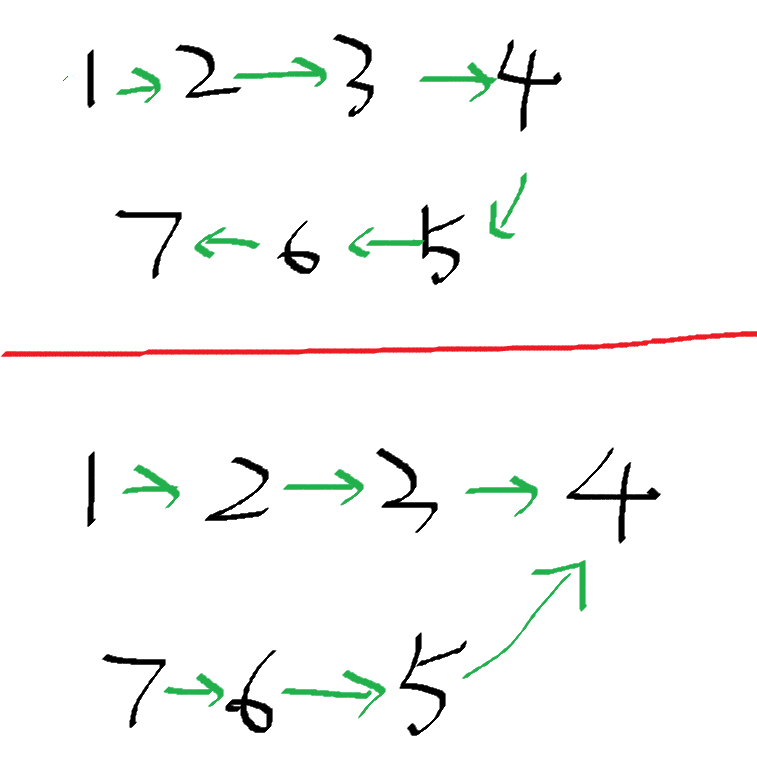 1 → 2 → 3 → 4
7 ← 6 ← 5 ↙
1 → 2 → 3 → 4
7 → 6 → 5 ↗